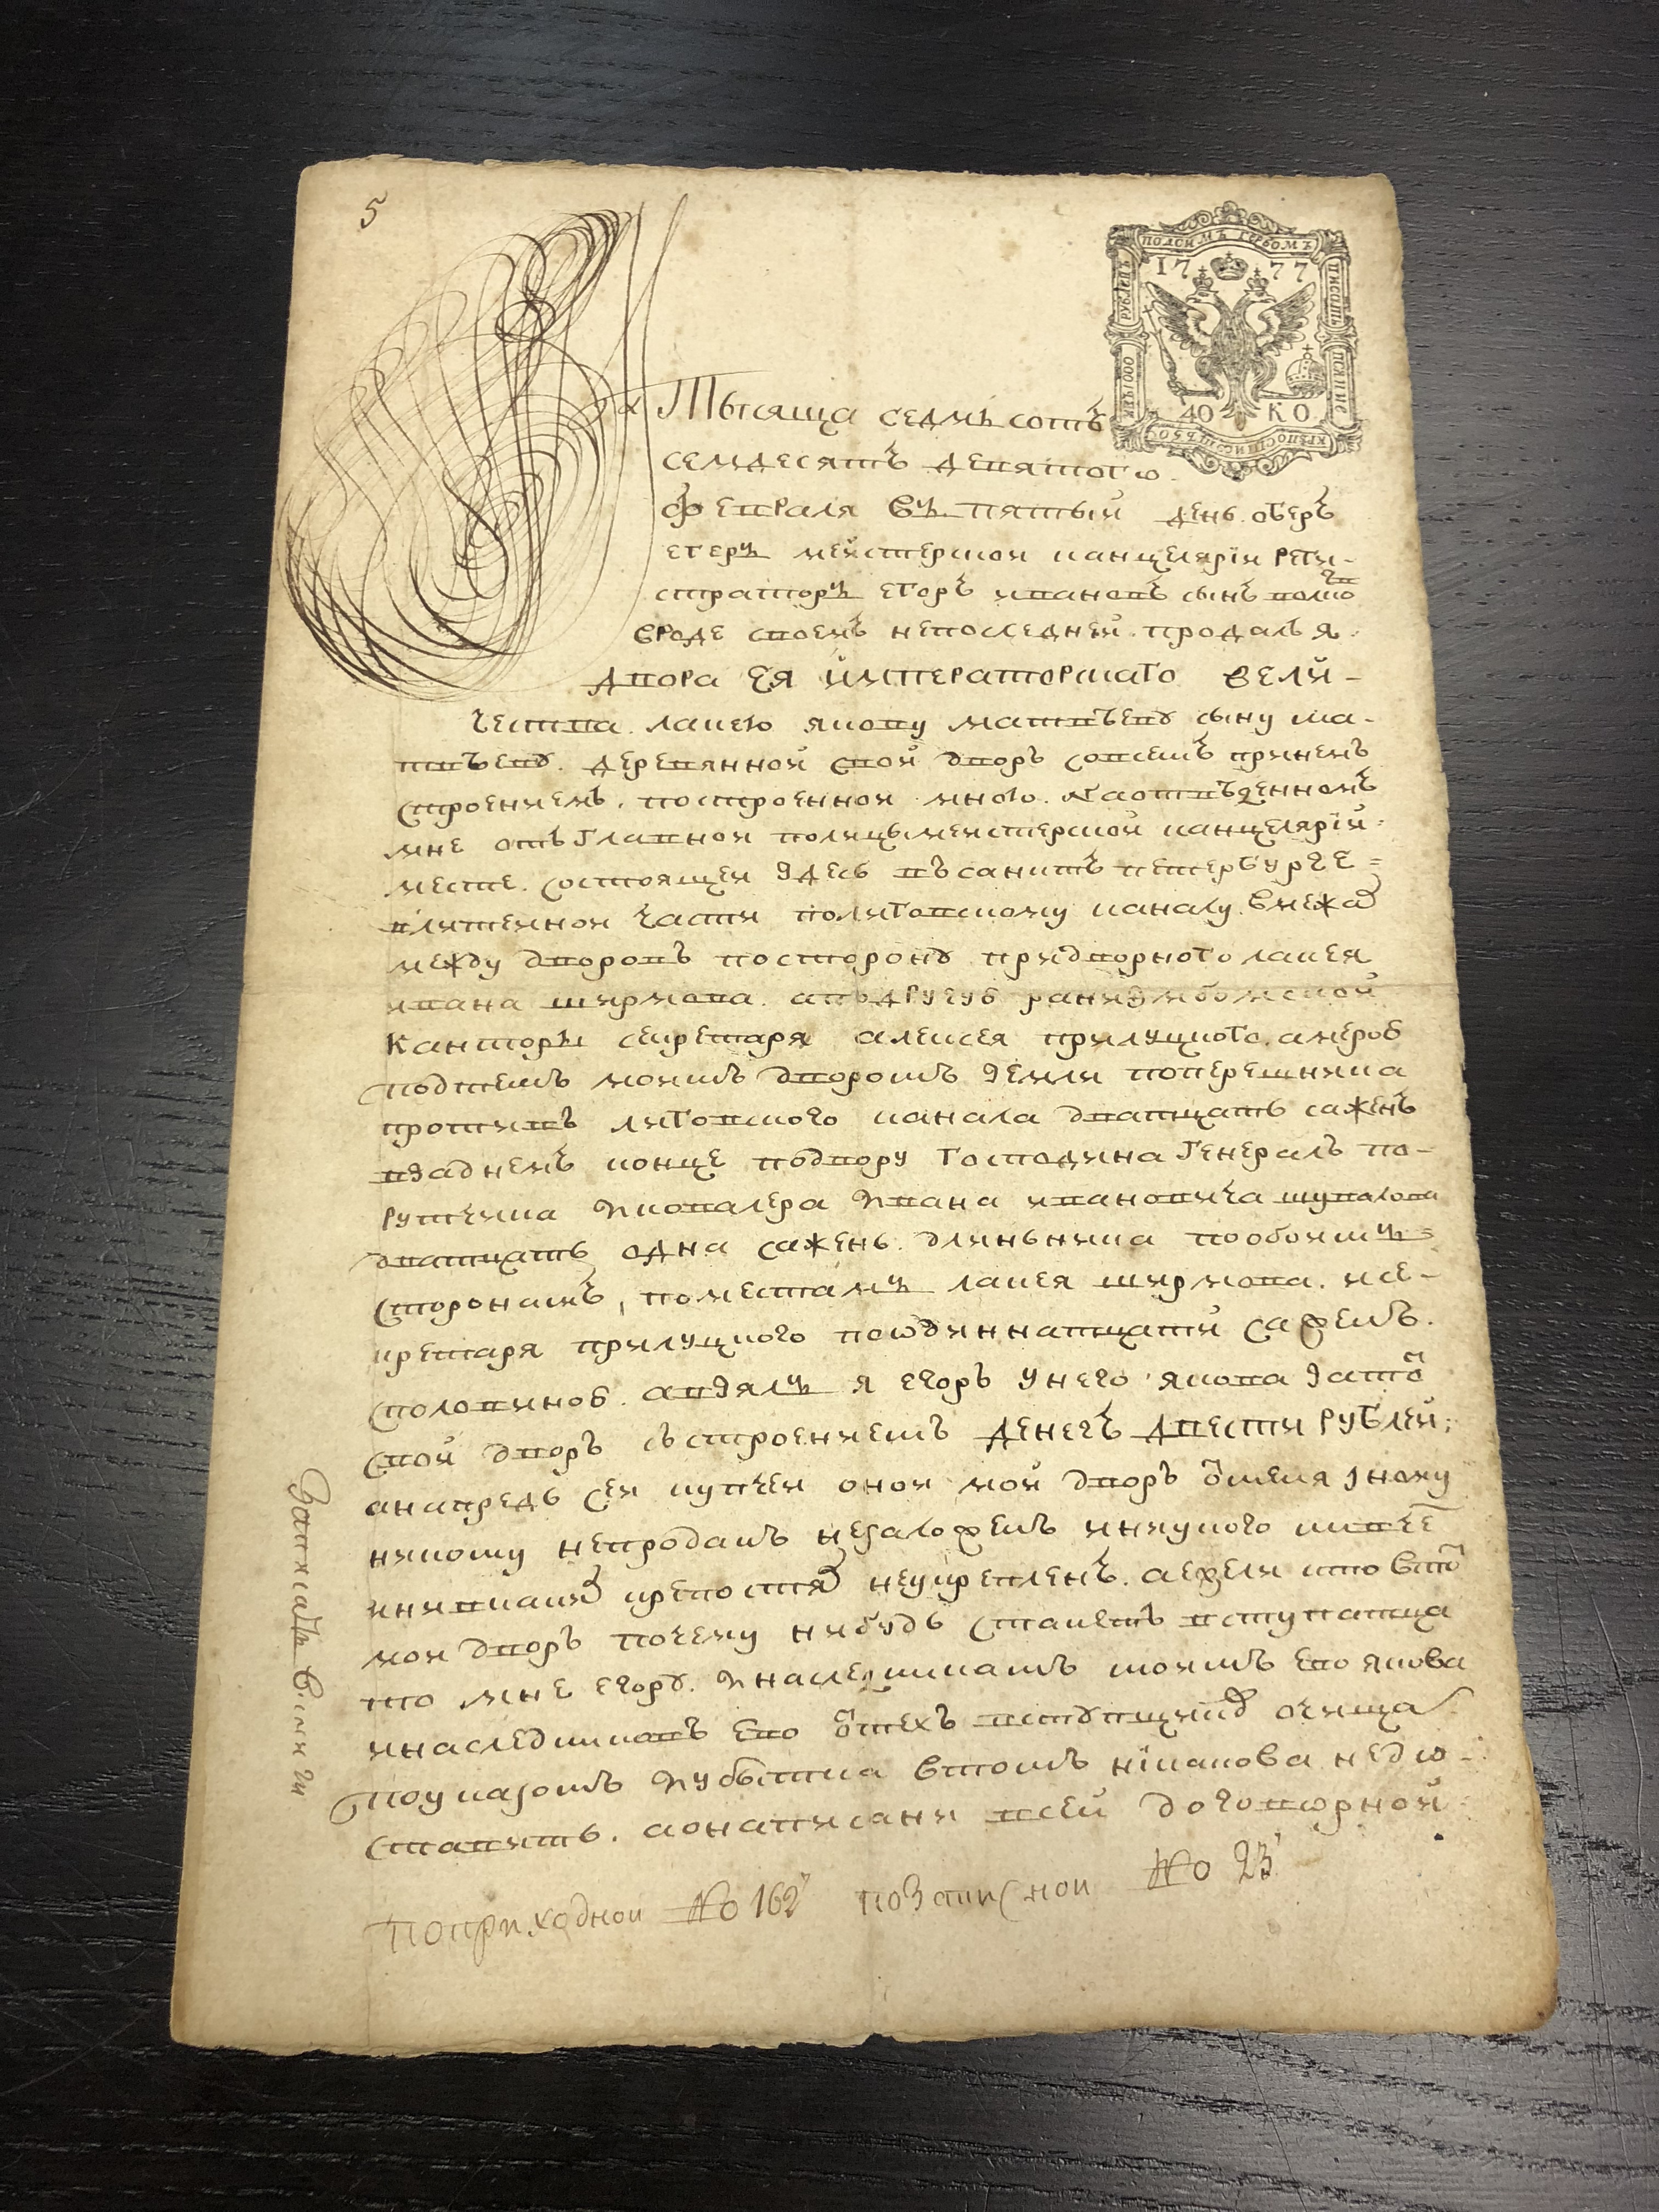 5
ПОДСИМЪ ГЕРБОМЪ
17 77
40 КО
Тысяща седмь сотъ
семдесятъ девятого
февраля въ пятый день оберъ
егеръ мейстерской канцелярїи реги-
страторъ егоръ ивановъ сынъ
вроде своемъ непоследней продалъ я
двора ея императорскаго вели-
чества лакею якову матвѣеву сыну ма-
твѣеву деревянной свой дворъ совсемъ принемъ
строениемъ построенной мною наотвѣденномъ
мне отъ главной полицымейстерской канцелярїи
месте состоящей здесь всанктъ петербурге
влитейной части полиговскому каналу вмежах
между дворовъ посторону придворного лакея
ивана ширяова а подругую
канторы секретаря алексея прилуцкого а мерою
подтемъ моимъ дворомъ земли поперешника
противъ лиговского канала дватцать сажень
взаднемъ конце подвору господина генералъ по-
рутчика икавалера ивана ивановича шувалова
дватцать одна сажень длинника пообоимъ
сторонамъ поместамъ лакея ширяова исе-
кретаря прилуцкого пοодиннатцати сажень
споловиною авзялъ я егоръ унего якова зато
свой дворъ състроениемъ денегъ двести рублей
анапредь сей купчей оной мой дворъ отменя иному
никому непроданъ незаложенъ
иникакихъ крепостях неукрепленъ аежели кто втот
мой дворъ почему нибудь станетъ вступатца
то мне егору инаследникамъ моимъ ево якова
инаследниковъ ево отехъ вступщиков очищать
поуказомъ иубытка втомъ никакова недо-
ставить аонаписани всей договорной
поприходной No 162 позаписной No 23
Записать вкниги